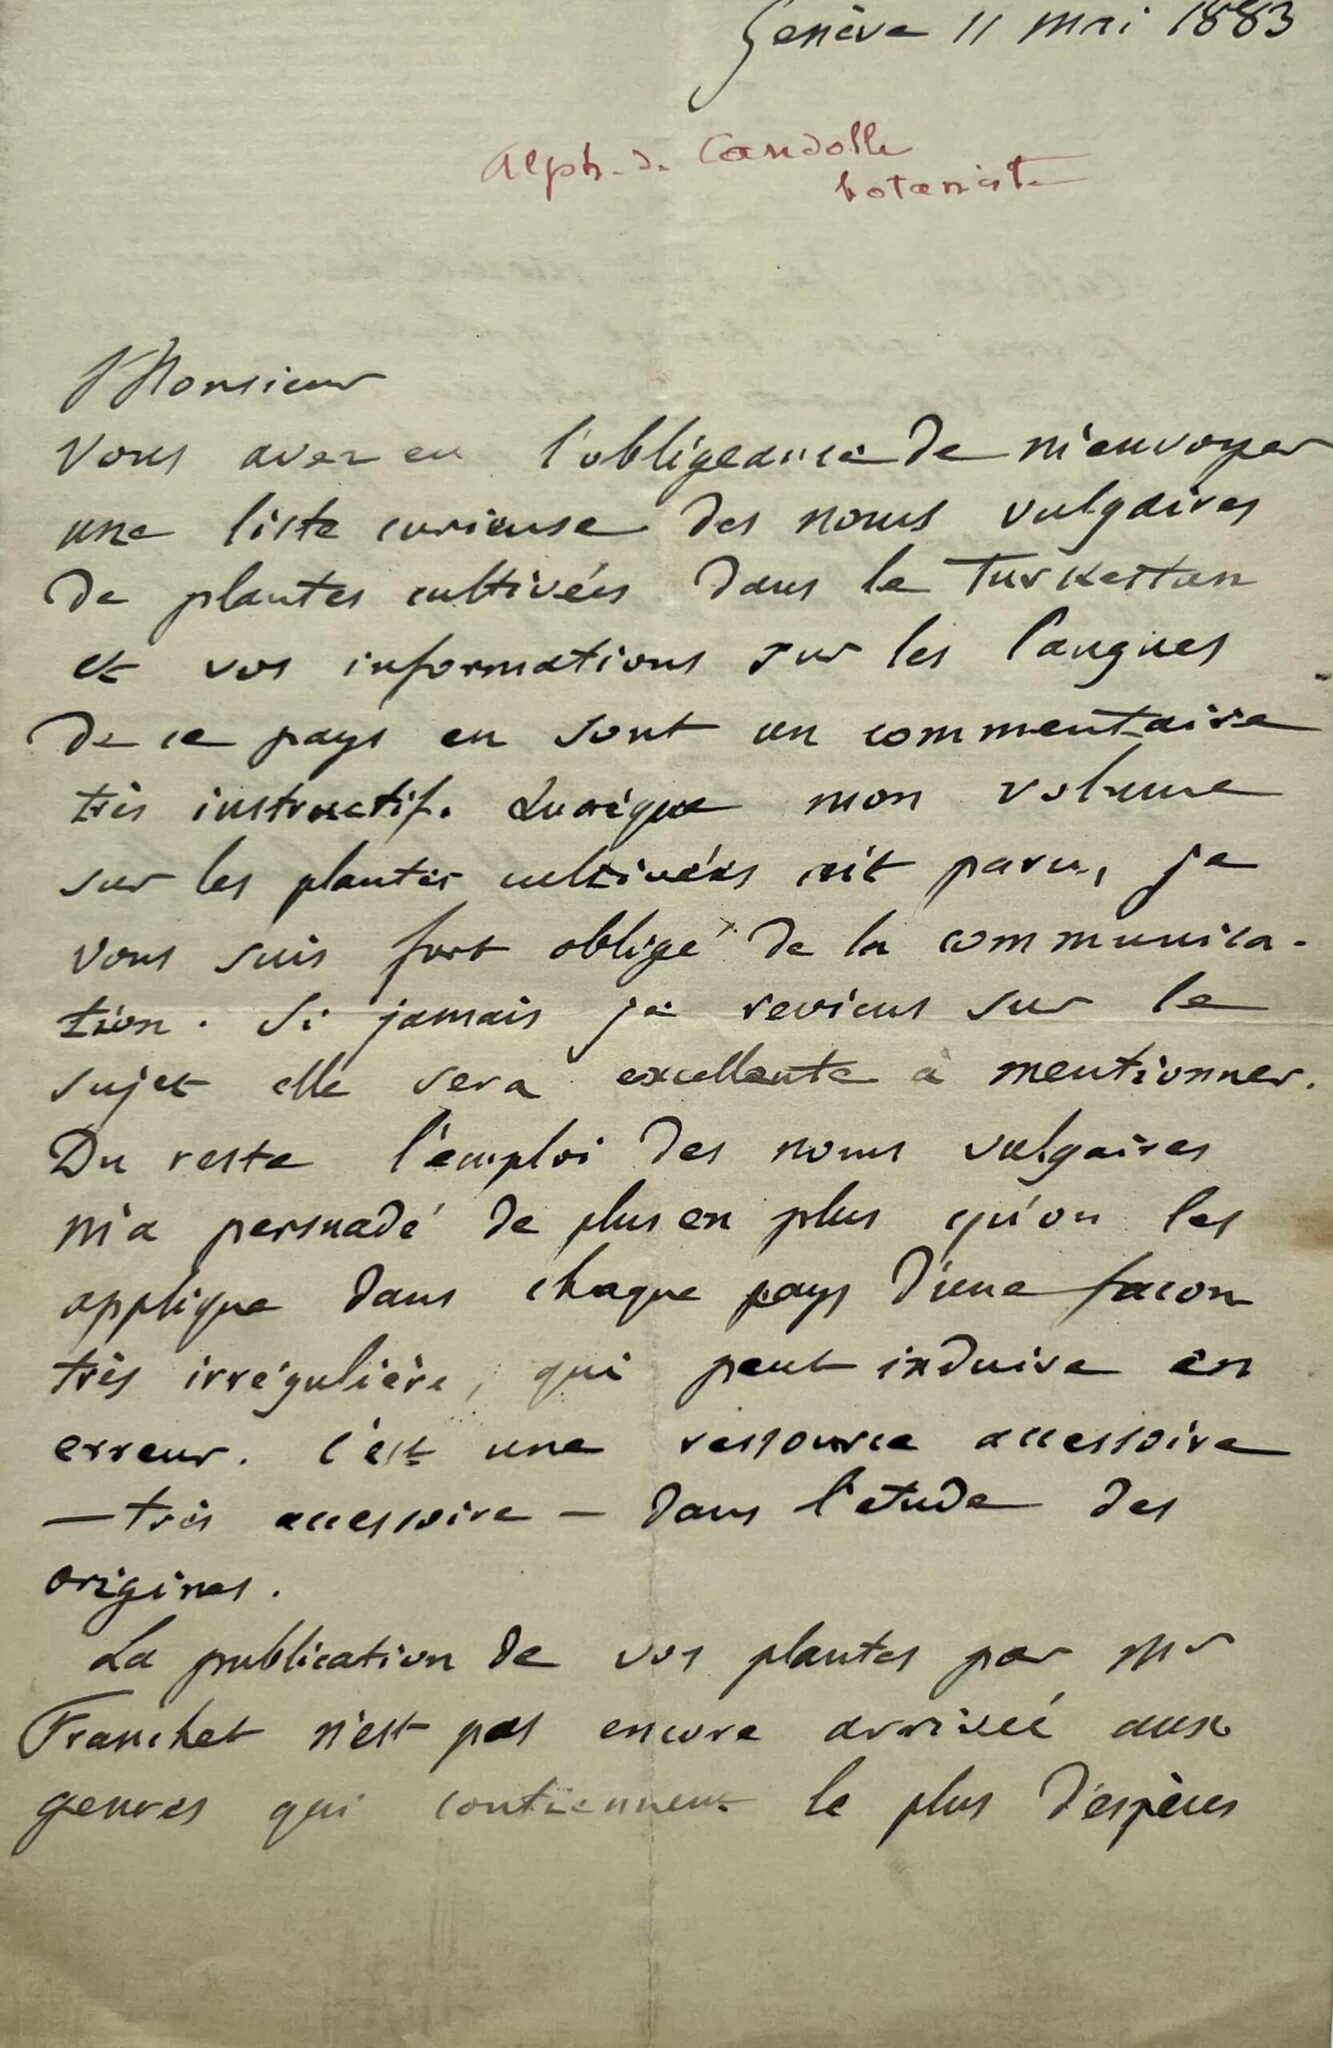 Genève 11 mai 1883
Alph. de Candolle
botaniste
Monsieur
Vous avez eu l'obligeance de m'envoyer
une liste curieuse des noms vulgaires
de plantes cultivées dans le Turkestan
et vos informations sur les langues
de ce pays en sont un commentaire
très instructif. Quoique mon volume
sur les plantes cultivées ait paru, je
vous suis fort obligé de la communica-
tion. Si jamais je reviens sur le
sujet elle sera excellente à mentionner.
Du reste l'emploi des noms vulgaires
m'a persuadé de plus en plus qu'on les
applique dans chaque pays d'une facon
très irrégulière, qui peut induire en
erreur. C'est une ressource accessoire
— très accessoire — dans l'etude des
origines.
La publication de vos plantes par Mr
Franchet n'est pas encore arrivée aux
genres qui contiennent le plus d'espèces